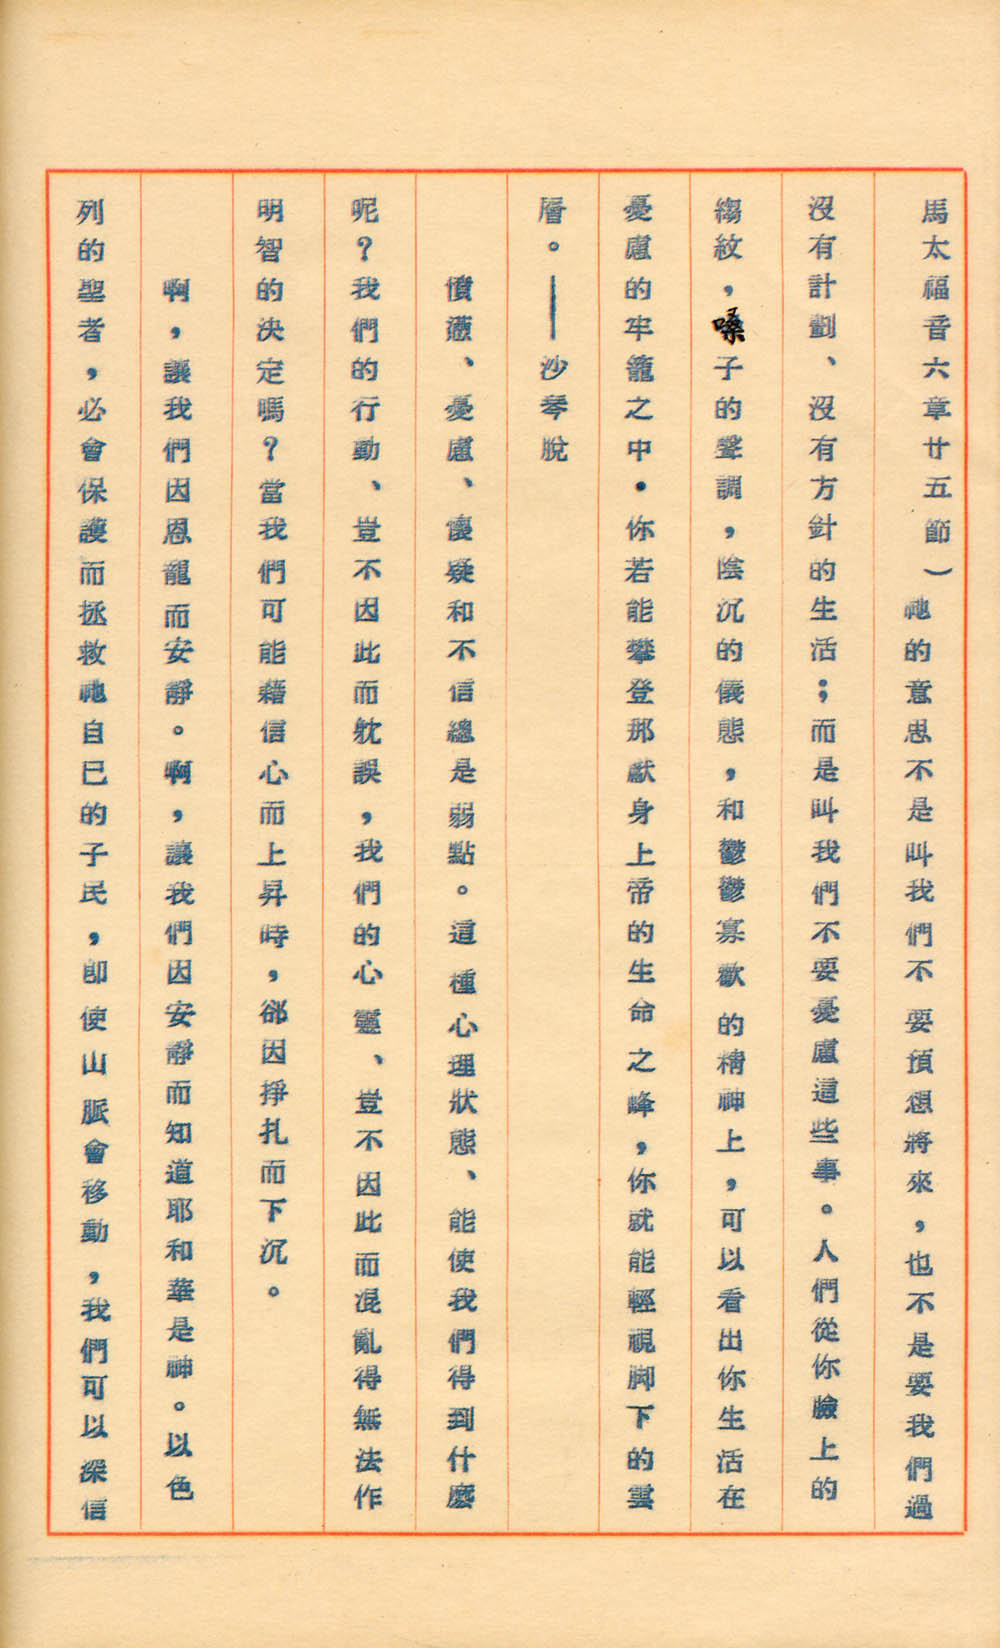 馬太福音六章廿五節）祂的意思不是叫我們不要預想將來，也不是要我們過
沒有計劃、沒有方針的生活；而是叫我們不要憂慮這些事。人們從你臉上的
縐紋，嗓子的聲調，陰沉的儀態，和鬱鬱寡歡的精神上，可以看出你生活在
憂慮的牢籠之中．你若能攀登那獻身上帝的生命之峰，你就能輕視脚下的雲
層。——沙琴脫
憤懣、憂慮、懷疑和不信總是弱點。這種心理狀態、能使我們得到什麽
呢？我們的行動、豈不因此而躭誤，我們的心靈、豈不因此而混亂得無法作
明智的決定嗎？當我們可能藉信心而上昇時，郤因掙扎而下沉。
啊，讓我們因恩寵而安靜。啊，讓我們因安靜而知道耶和華是神。以色
列的聖者，必會保護而拯救祂自已的子民，卽使山脈會移動，我們可以深信